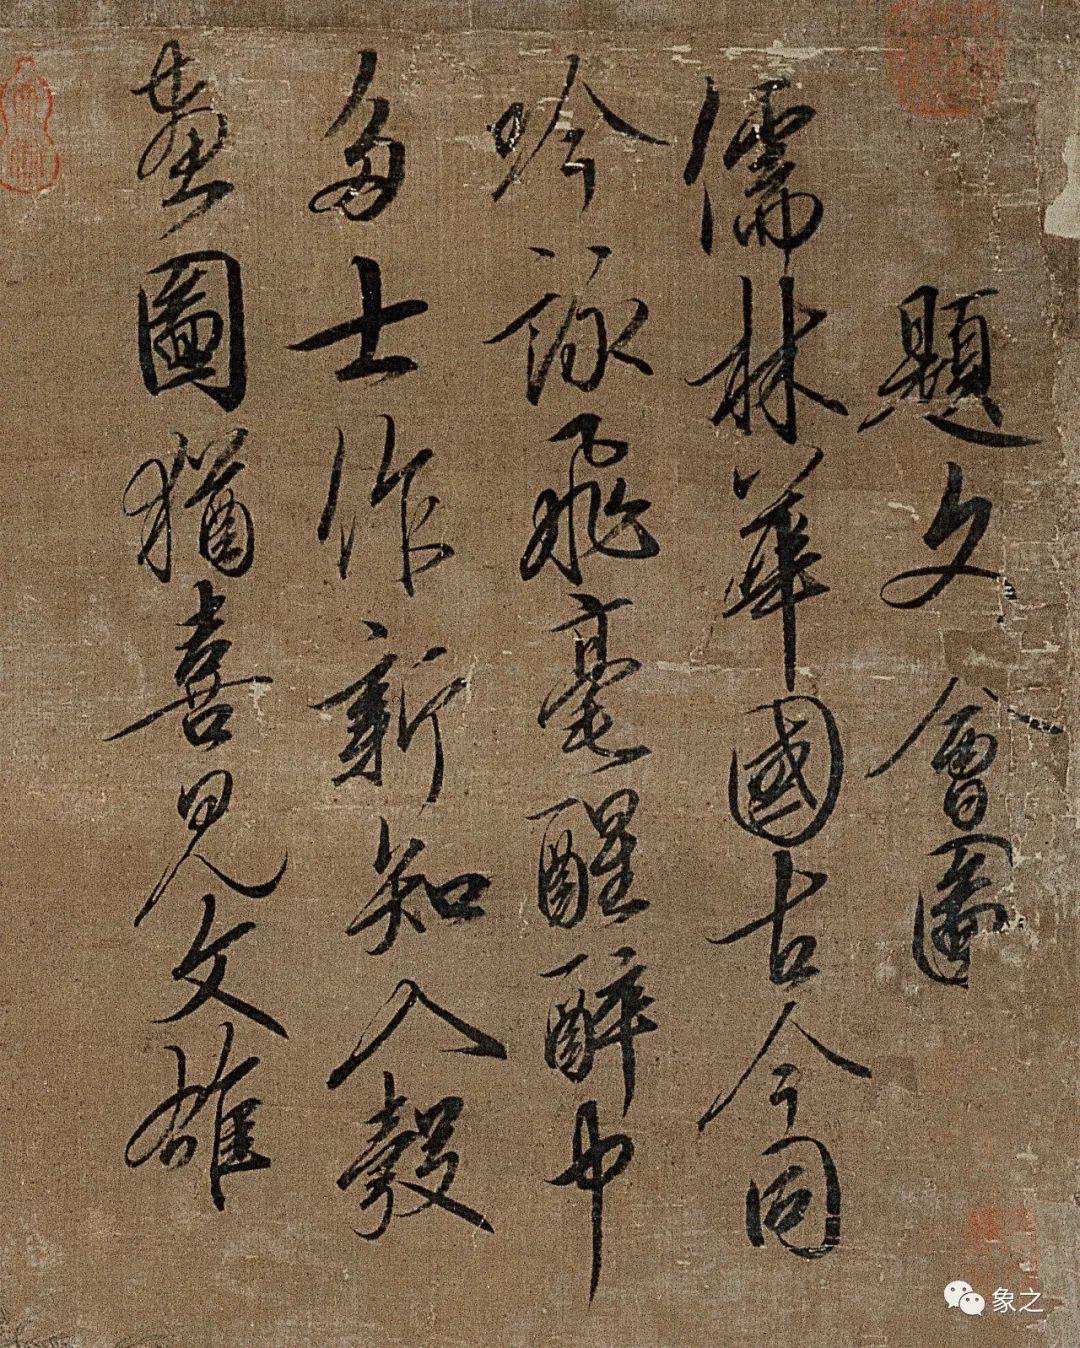 題文會圖
儒林華國古今同
吟詠飛毫醒醉中
多士作新知入彀
畫圖猶喜見文雄
象之